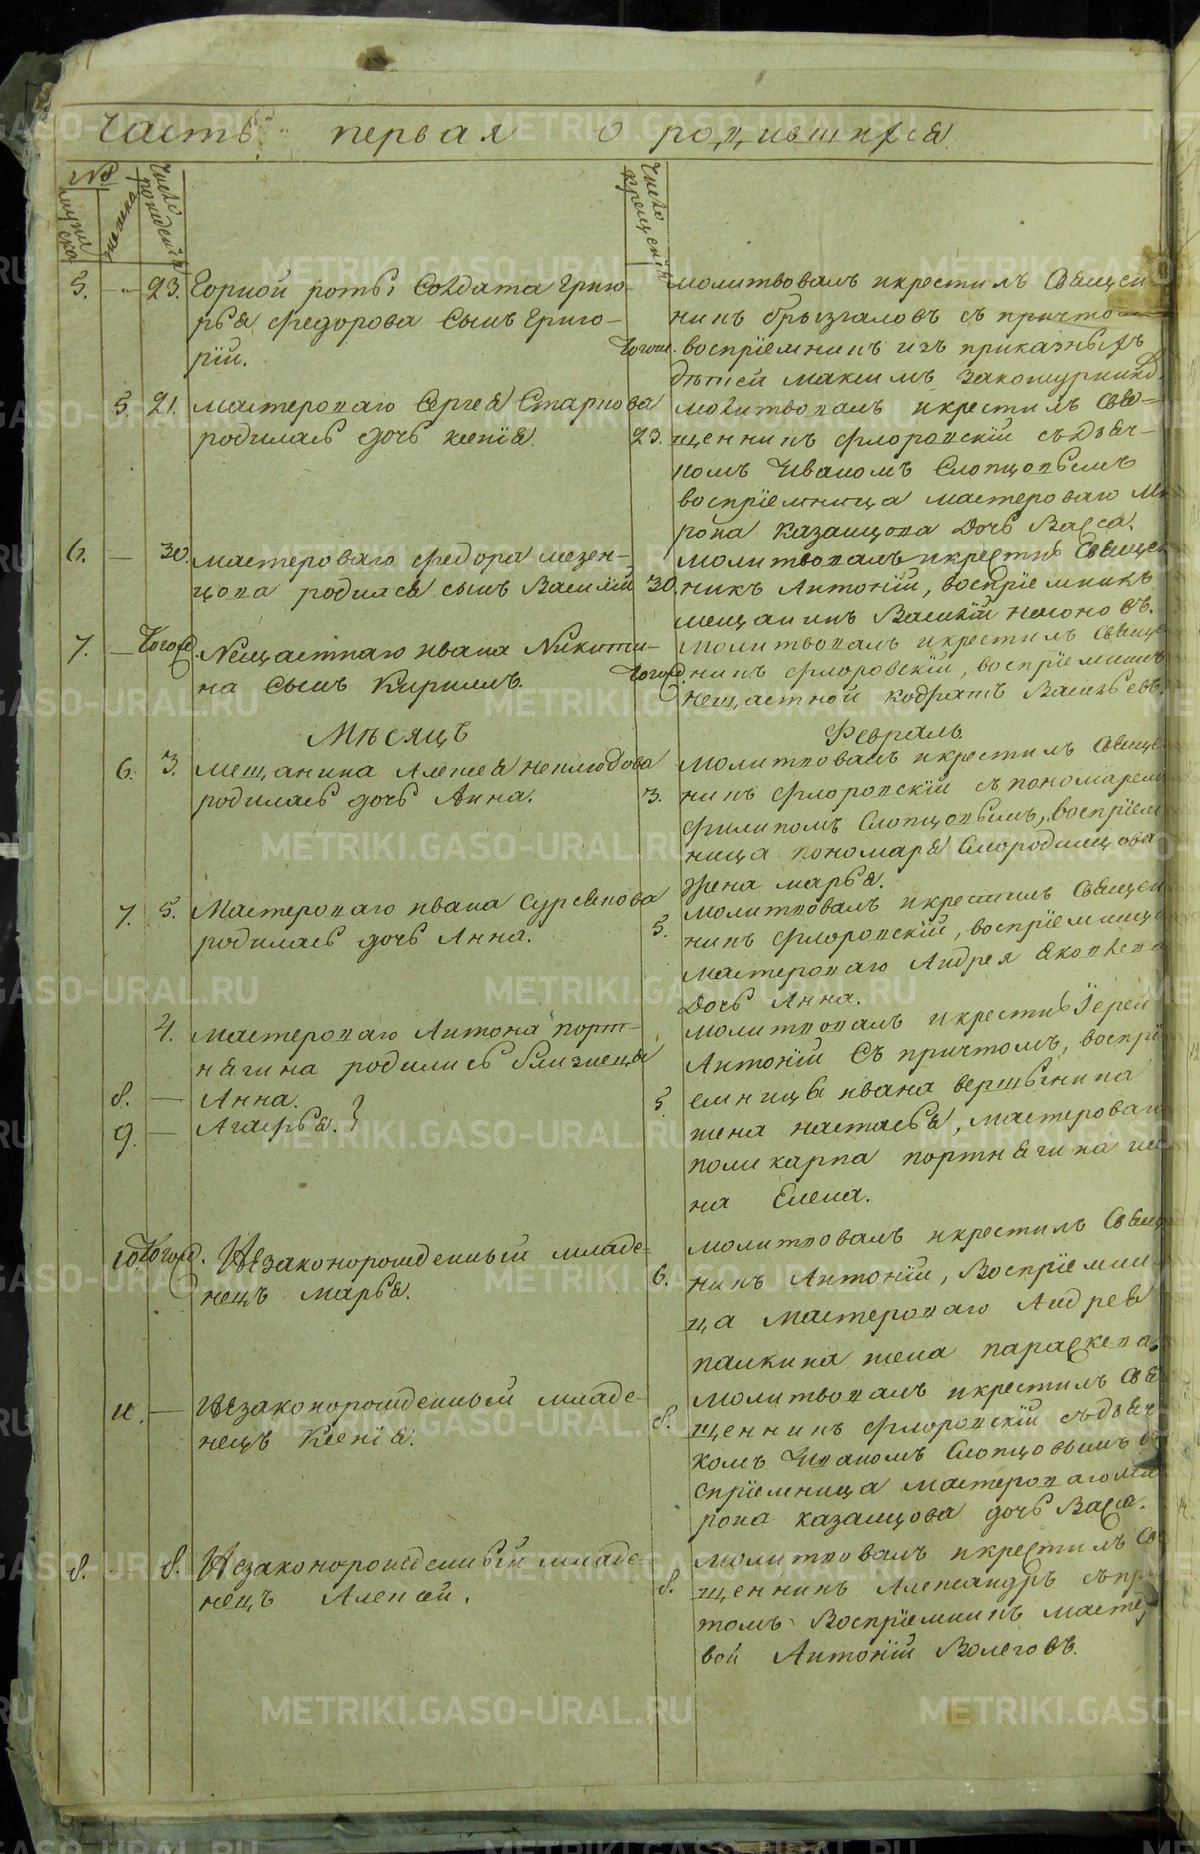 Часть первая о родившихся
№
мужеска
женска
Число рождения
Число крещения
5. — 23. Горной роты Солдата Григо-
рья Федорова сынъ Григо-
рій.
молитвовалъ и крестилъ Священ-
никъ Брызгаловъ съ причто
Тогож. воспріемникъ изъ приказныхъ
детей Максимъ
5. 21. мастероваго Сергея Старкова
родилась дочь Ксенія.
молитвовалъ и крестилъ Свя-
23. щенникъ Флоровскій съ Дьяч-
комъ Иваномъ Слопцовымъ
воспріемница мастероваго Ми
рона Казанцова Дочь Васса.
6. — 30. мастероваго Федора мезен-
цова родился сынъ Василій
молитвовалъ и крестилъ Священ
30. никъ Антоній, воспріемникъ
мещанинъ Василій
7. — Тогож Нещастнаго ивана Никити-
на Сынъ Кириллъ.
молитвовалъ и крестилъ Свяще
Тогож. никъ Флоровскій, воспріемникъ
нещастной Кодратъ Васильевъ.
Мѣсяцъ Февраль
6. 3. мещанина Алексея неплюдова
родилась дочь Анна.
молитвовалъ и крестилъ Свяще
3. никъ Флоровскій съ пономаремъ
Филипомъ Слопцовымъ, воспріем
ница пономаря Смородинцова
жена марья.
7. 5. Мастероваго ивана Сурсянова
родилась дочь Анна.
молитвовалъ и крестилъ Священ
5. никъ Флоровскій, воспріемница
мастероваго Андрея Яковлева
Дочь Анна.
4. мастероваго Антона порт-
нягина родились близнецы
8. — Анна.
9. — Агафья. }
молитвовалъ и крестилъ Іерей
Антоній Съ причтомъ, воспрі
5. емницы ивана вершинина
жена настасья, мастероваго
поликарпа портнягина же
на Елена.
10 Тогож. Незаконорожденный младе-
нецъ марья.
молитвовалъ и крестилъ Свящ
6. никъ Антоній, Воспріемни-
ца мастероваго Андрея
палкина жена параскева.
11. — Незаконорожденный младе-
нецъ Ксенія.
молитвовалъ и крестилъ Свя
8. щенникъ Флоровскій съ дьяч
комъ Иваномъ Слопцовымъ во
спріемница мастероваго ми
рона казанцова дочь Васса.
8. 8. Незаконорожденный младе-
нецъ Алексей.
молитвовалъ и крестилъ Св
8. щенникъ Александръ съ при
томъ Воспріемникъ масте
вой Антоній Волеговъ.